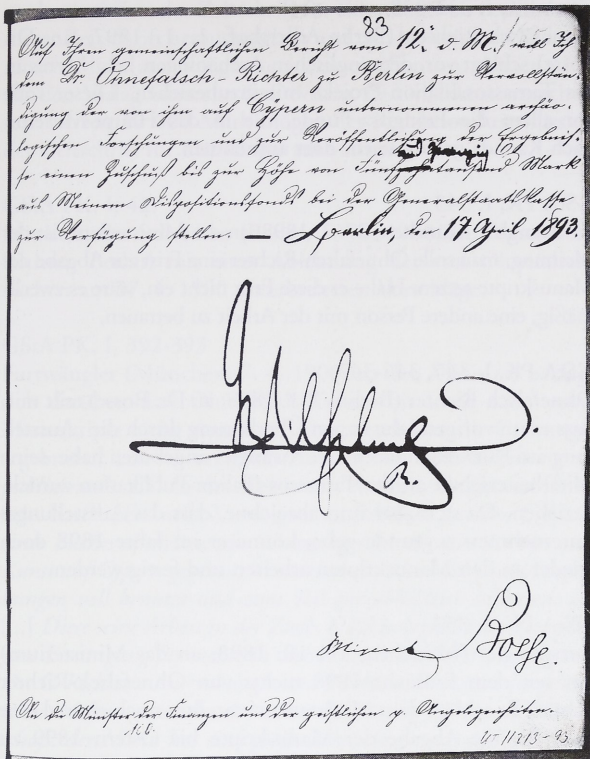 83
Auf Ihren gemeinschaftlichen Bericht vom 12. d. M. will Ich
dem Dr. Ohnefalsch-Richter zu Berlin zur Vervollstän-
digung der von ihm auf Cypern unternommenen archäo-
logischen Forschungen und zur Veröffentlichung der Ergebnis-
se einen Zuschuß bis zur Höhe von Fünf und zwanzig tausend Mark
aus Meinem Dispositionsfonds bei der Generalstaatskasse
zur Verfügung stellen. — Berlin, den 17. April 1893.
Wilhelm
R.
Miquel Bosse.
An die Minister der Finanzen und der geistlichen p. Angelegenheiten.
U-11213-93